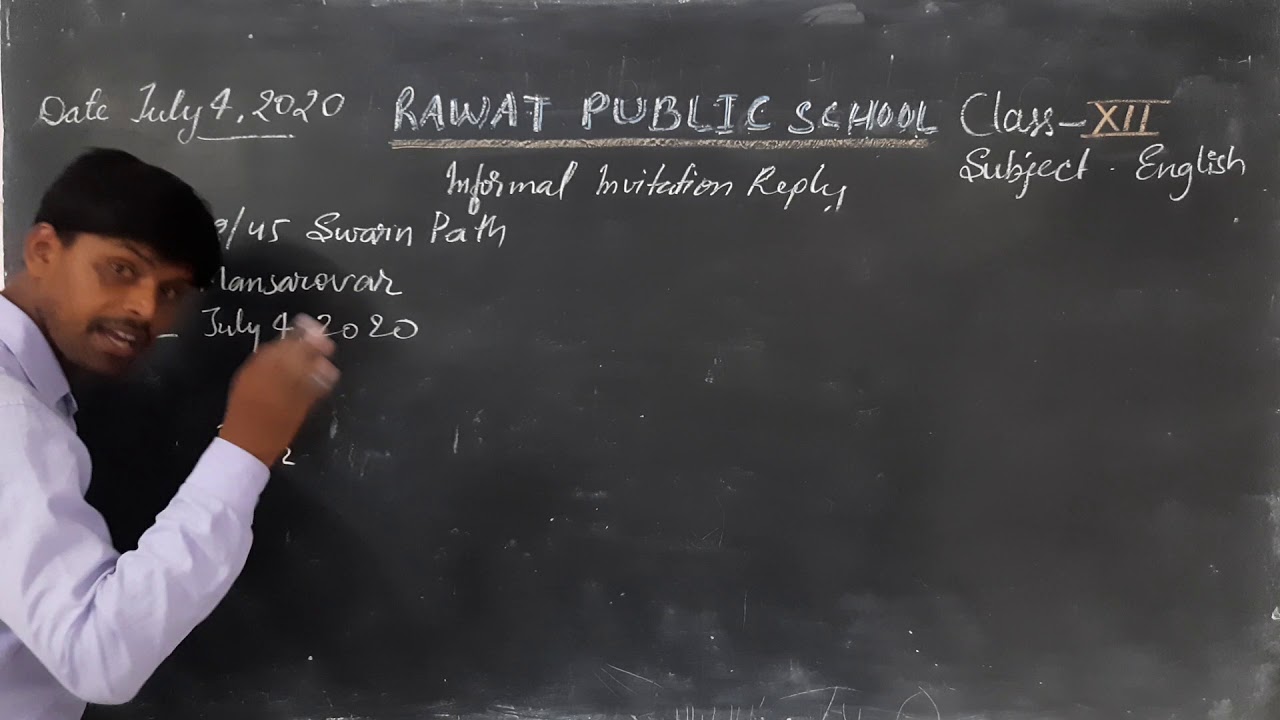 Date July 4, 2020
RAWAT PUBLIC SCHOOL
Class - XII
Subject - English
Informal Invitation Reply
9/45 Swarn Path
Mansarovar
July 4, 2020